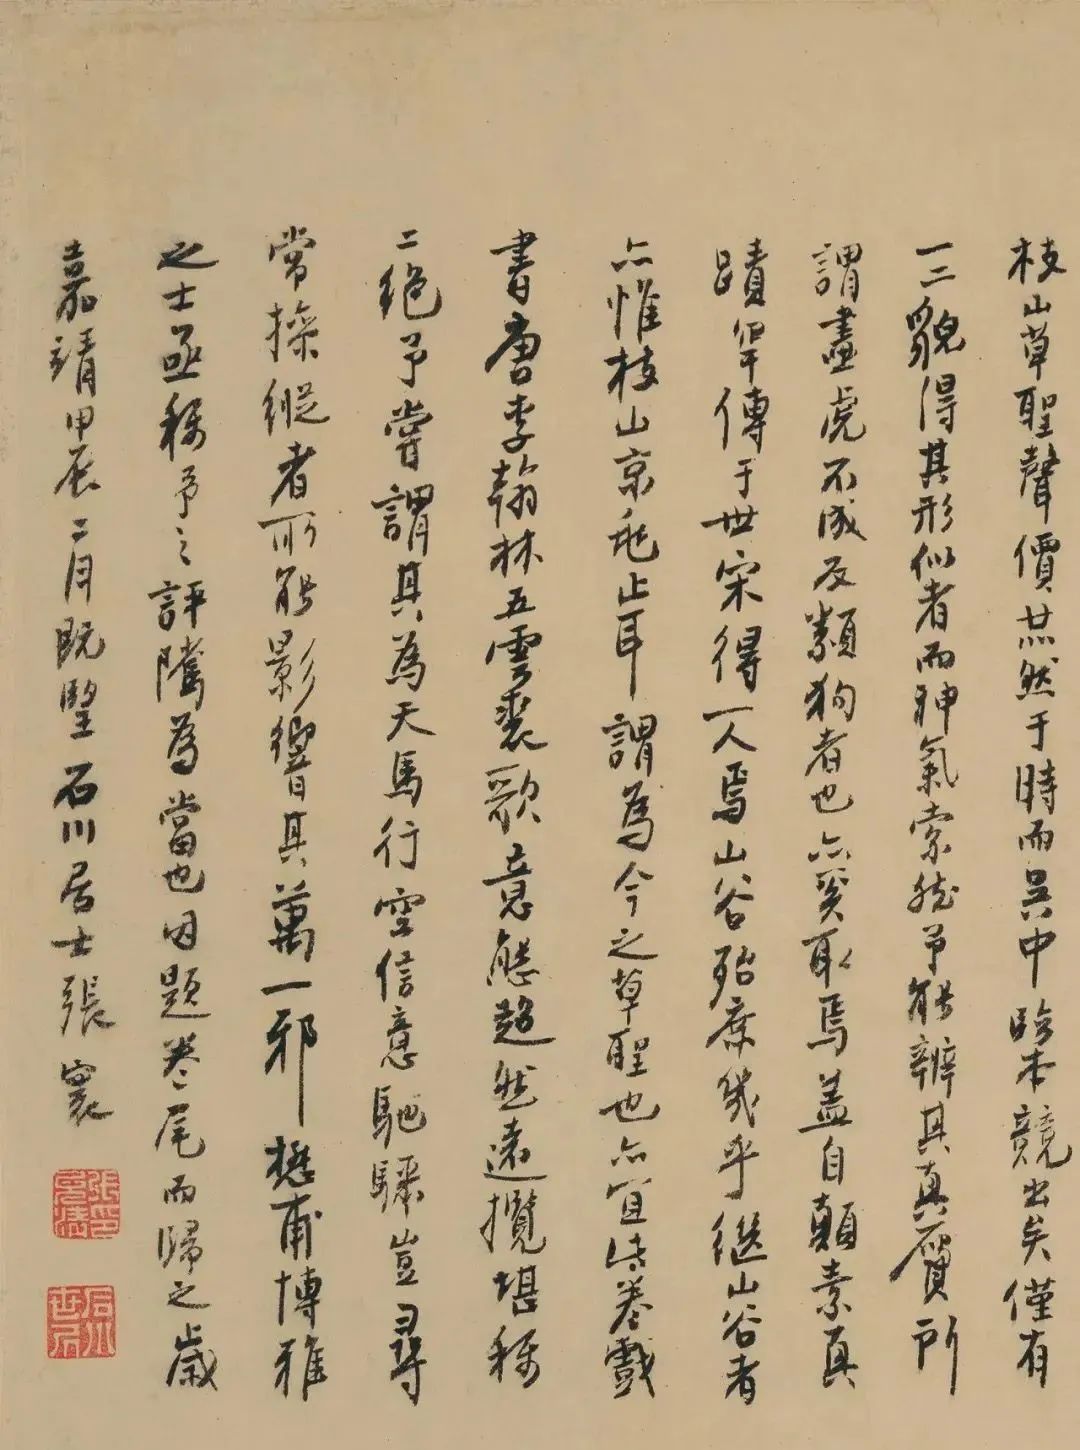 枝山草聖聲價然于時而吳中臨本競出矣僅有
一二貌得其形似者而神氣索然予能辨其真贋所
謂畫虎不成反類狗者也亦奚取焉蓋自顛素真
蹟罕傳于世宋得一人焉山谷殆庶幾乎繼山谷者
亦惟枝山京兆止耳謂為今之草聖也亦宜此卷戲
書唐李翰林五雲裘歌意態超然遠攬堪稱
二絕予嘗謂其為天馬行空信意馳驟豈尋
常操縱者所能影響其萬一邪懋甫博雅
之士亟稱予之評騭為當也因題卷尾而歸之歲
嘉靖甲辰二月既望石川居士張寰